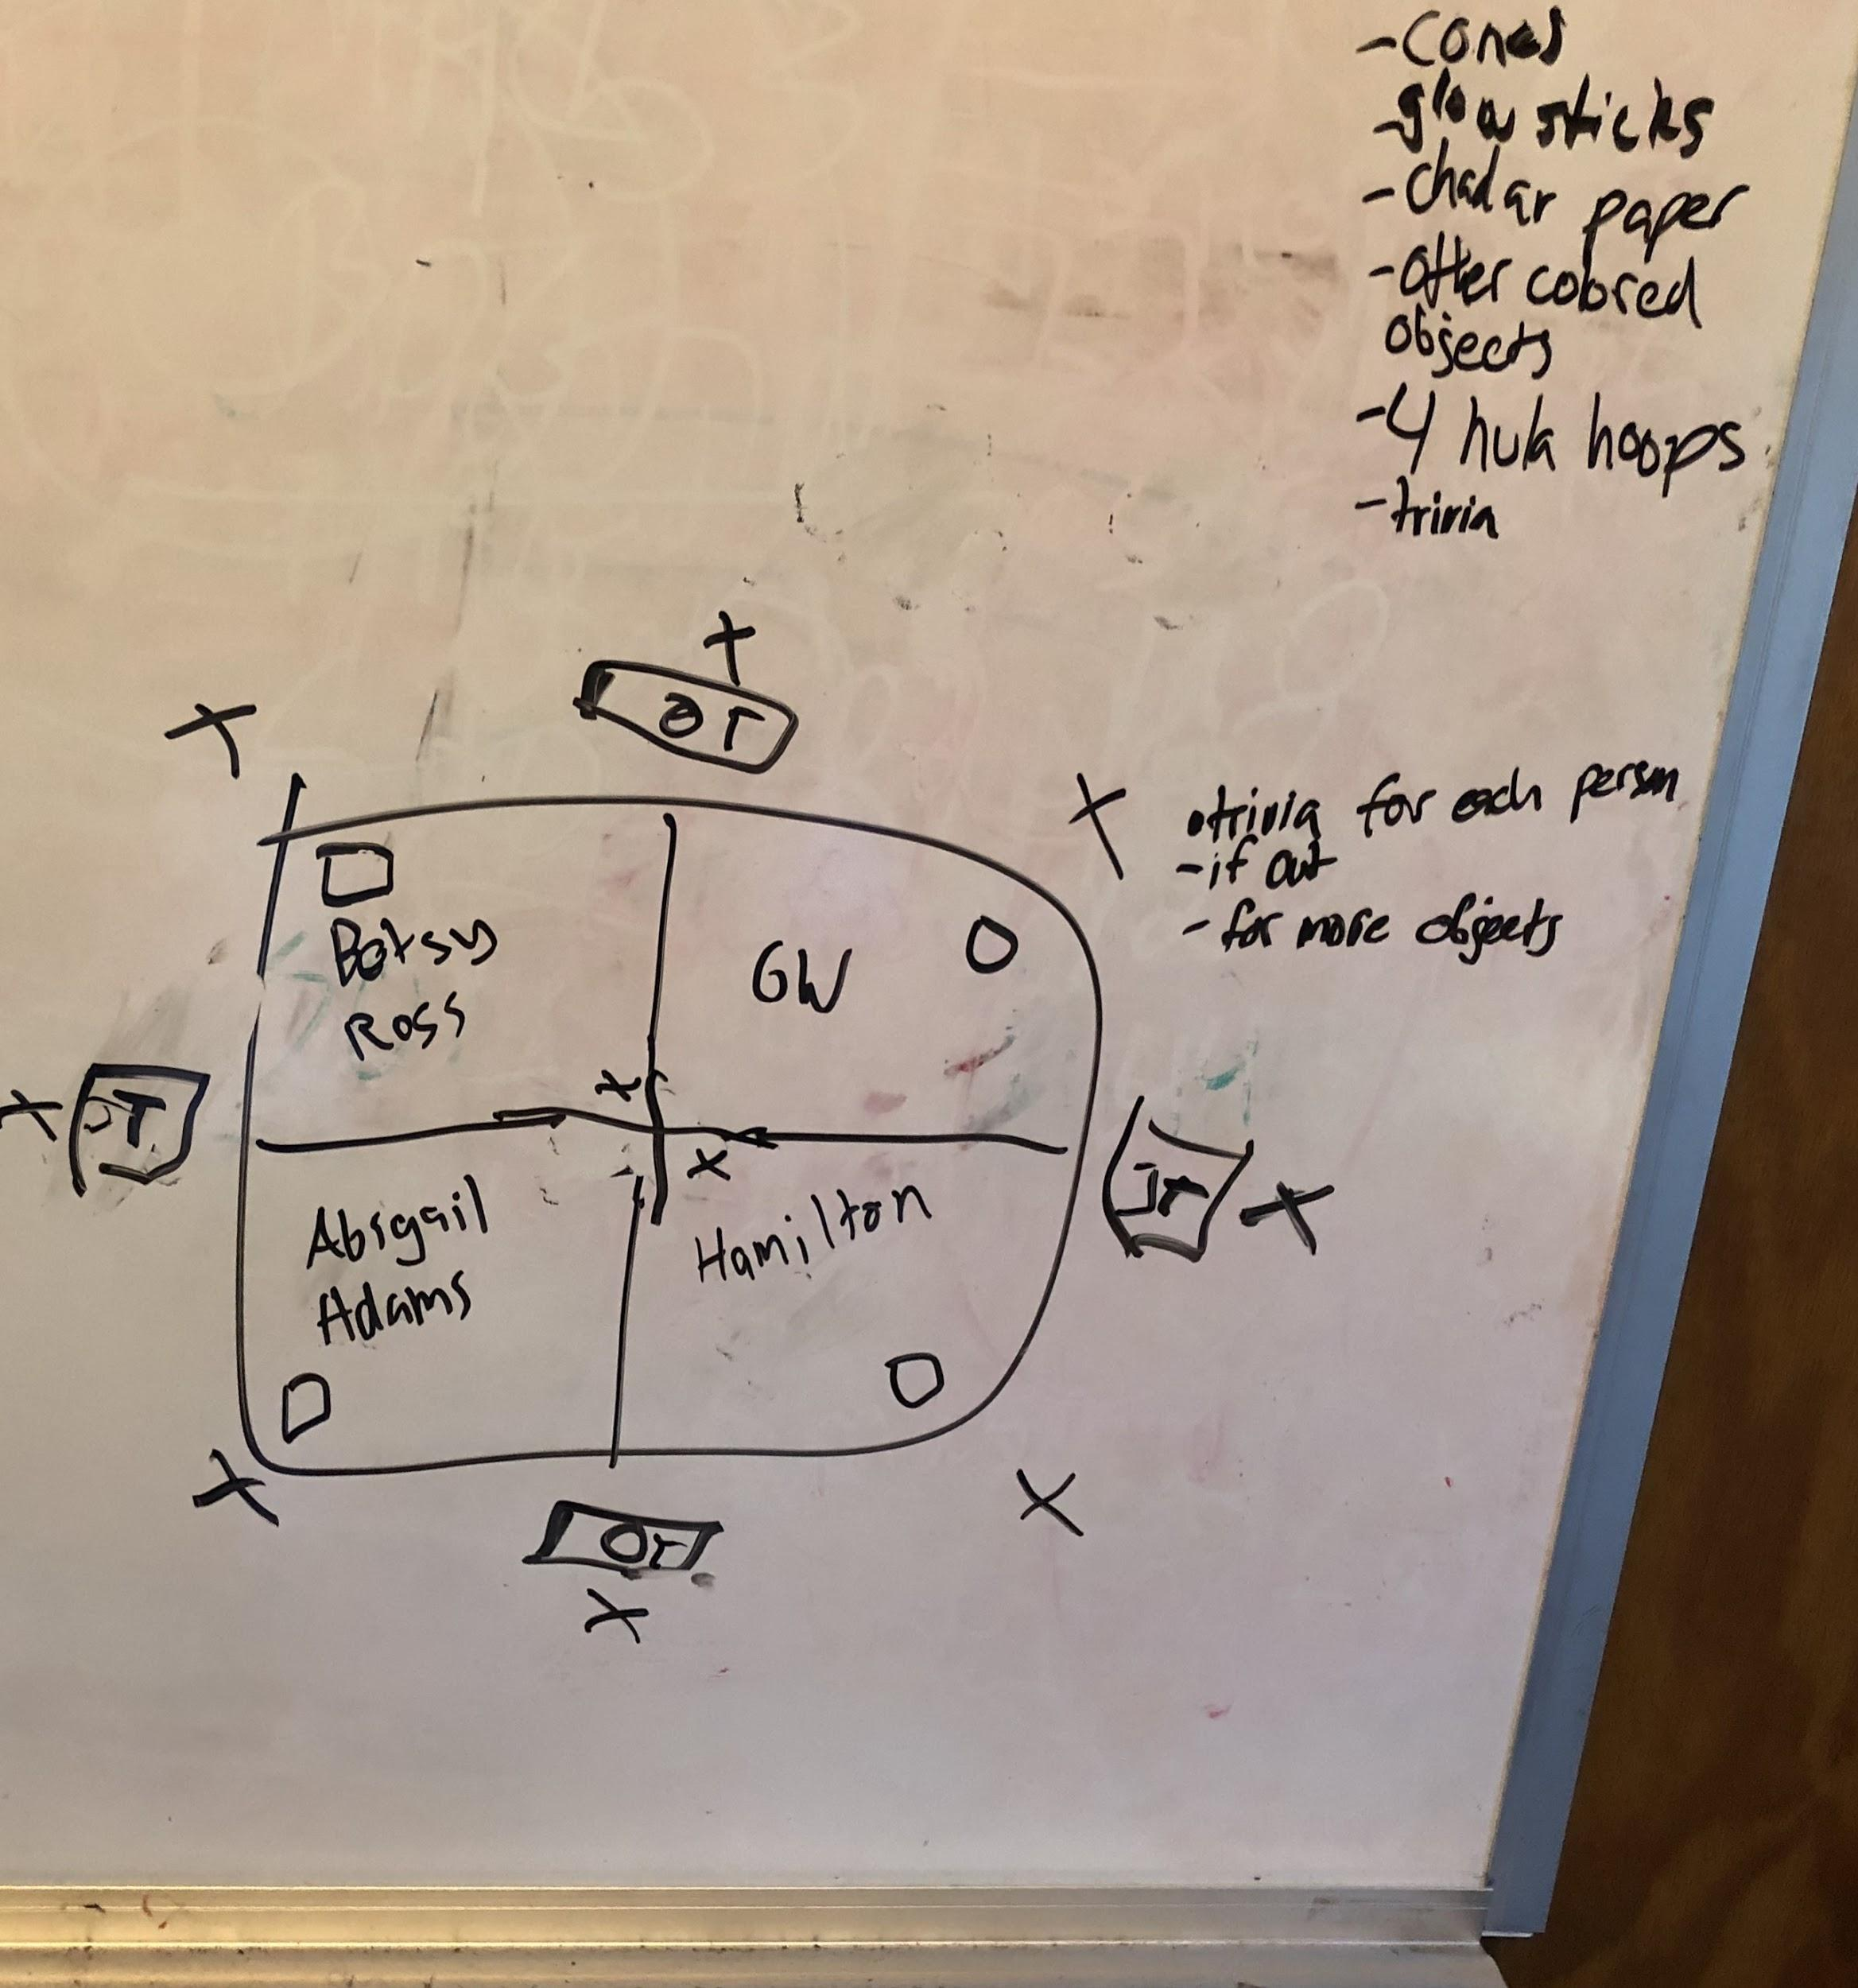 - cones
- glow sticks
- chadar paper
- other colored
objects
- 4 hula hoops
- trivia
X
OT
X
X
• trivia for each person
- if out
- for more objects
Betsy
Ross
GW
X
X
JT
X
X
JT
X
Abigail
Adams
Hamilton
X
X
OT
X